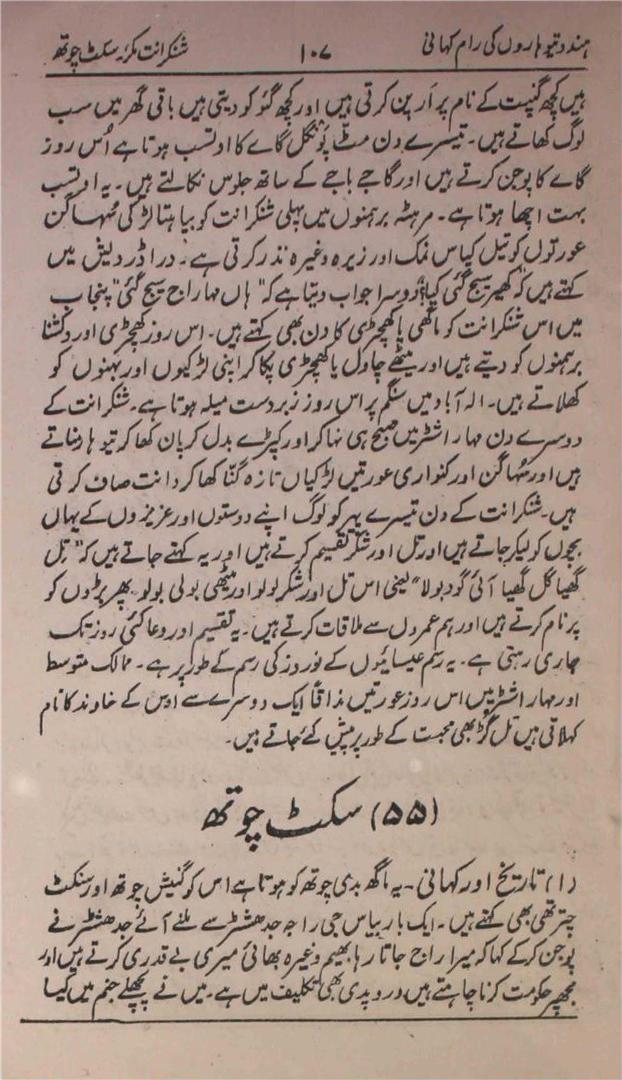 ہندو تیوہاروں کی رام کہانی ۱۰۷ شنکرانت مکر۔ سکٹ چوتھ
ہیں کچھ گنپت کے نام پر ارپن کرتی ہیں اور کچھ گئو کو دیتی ہیں باقی گھر میں سب
لوگ کھاتے ہیں۔ تیسرے دن مٹو پونگل گاے کا اوتسب ہوتا ہے اُس روز
گاے کا پوجن کرتے ہیں اور گاجے باجے کے ساتھ جلوس نکالتے ہیں۔ یہ اوتسب
بہت اچھا ہوتا ہے۔ مرہٹہ برہمنوں میں پہلی شنکرانت کو بیاہتا لڑکی سُہاگن
عورتوں کو تیل کپاس نمک اور زیرہ وغیرہ نذر کرتی ہے۔ دراڈر دیش میں
کہتے ہیں "کھیر سیج گئی کیا؟" دوسرا جواب دیتا ہے کہ "ہاں مہاراج سیج گئی" پنجاب
میں اس شنکرانت کو ماگھی یا کھچڑی کا دن بھی کہتے ہیں۔ اس روز کھچڑی اور دکشنا
برہمنوں کو دیتے ہیں اور میٹھے چاول یا کھچڑی پکا کر اپنی لڑکیوں اور بہنوں کو
کھلاتے ہیں۔ الہ آباد میں سنگم پر اس روز زبردست میلہ ہوتا ہے۔ شنکرانت کے
دوسرے دن مہاراشٹر میں صبح ہی نہا کر اور کپڑے بدل کر پان کھا کر تیوہار مناتے
ہیں اور سُہاگن اور کنواری عورتیں لڑکیاں تازہ گنّا کھا کر دانت صاف کرتی
ہیں۔ شنکرانت کے دن تیسرے پہر کو لوگ اپنے دوستوں اور عزیزوں کے یہاں
بچوں کو لیکر جاتے ہیں اور تل اور شکر تقسیم کرتے ہیں اور یہ کہتے جاتے ہیں کہ "تِل
گھیا گل گھیا آنی گود بولا" یعنی اس تل اور شکر لو لو اور میٹھی بولی بولو۔ پھر بڑوں کو
پرنام کرتے ہیں اور ہم عمروں سے ملاقات کرتے ہیں۔ یہ تقسیم اور دعا کئی روز تک
جاری رہتی ہے۔ یہ رسم عیسائیوں کے نوروز کی رسم کے طور پر ہے۔ ممالک متوسط
اور مہاراشٹر میں اس روز عورتیں مذاقاً ایک دوسرے سے اوس کے خاوند کا نام
کہلاتی ہیں تل گڑ بھی محبت کے طور پر پیش کئے جاتے ہیں۔
(۵۵) سکٹ چوتھ
(۱) تاریخ اور کہانی۔ یہ ماگھ بدی چوتھ کو ہوتا ہے اس کو گنیش چوتھ اور سنکٹ
چترتھی بھی کہتے ہیں۔ ایک بار بیاس جی راجہ جدھشٹر سے ملنے آئے جدھشٹر نے
پوجن کرکے کہا کہ میرا راج جاتا رہا بھیم وغیرہ بھائی میری بے قدری کرتے ہیں اور
مجھپر حکومت کرنا چاہتے ہیں دروپدی بھی تکلیف میں ہے۔ میں نے پچھلے جنم میں کیا